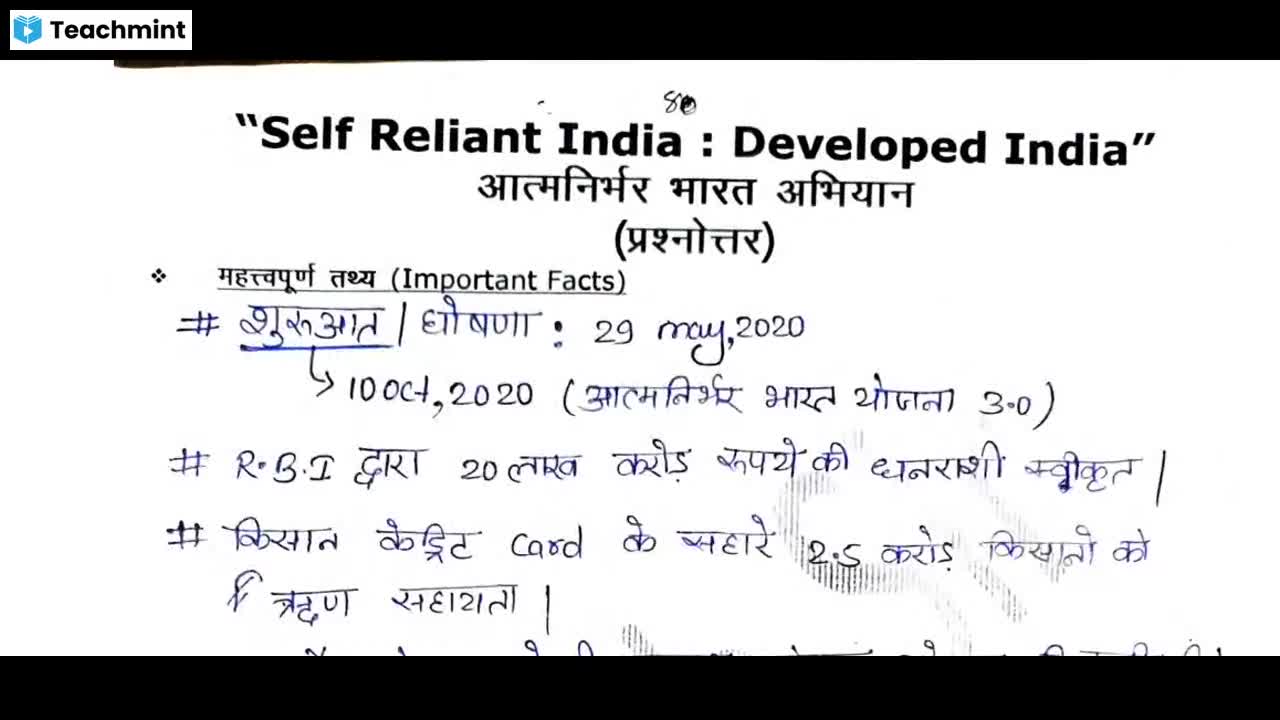 Teachmint
80
“Self Reliant India : Developed India”
आत्मनिर्भर भारत अभियान
(प्रश्नोत्तर)
❖ महत्त्वपूर्ण तथ्य (Important Facts)
# शुरूआत | घोषणा : 29 may,2020
↳ 10 Oct, 2020 (आत्मनिर्भर भारत योजना 3.0)
# R.B.I द्वारा 20 लाख करोड़ रूपये की धनराशी स्वीकृत |
# किसान क्रेड्रिट Card के सहारे 2.5 करोड़ किसानो को
ऋण सहायता |